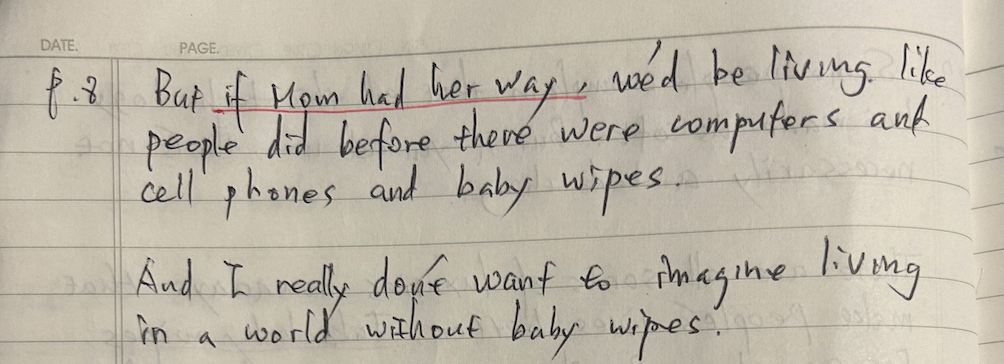 DATE. PAGE.
p.8 But if Mom had her way, we'd be living like
people did before there were computers and
cell phones and baby wipes.
And I really don't want to imagine living
in a world without baby wipes.